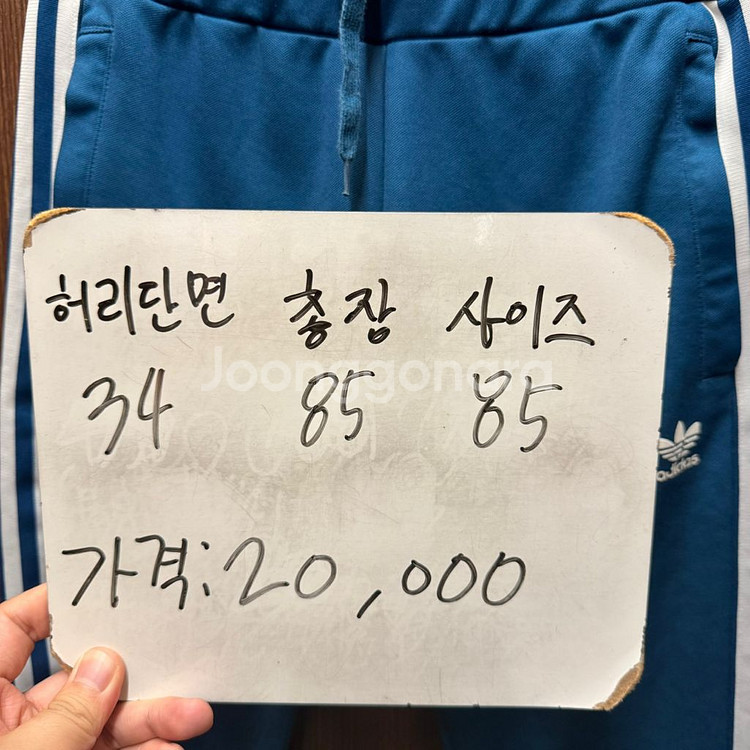 허리단면 총장 사이즈
Joonggonara
34 85 85
adidas
가격: 20,000